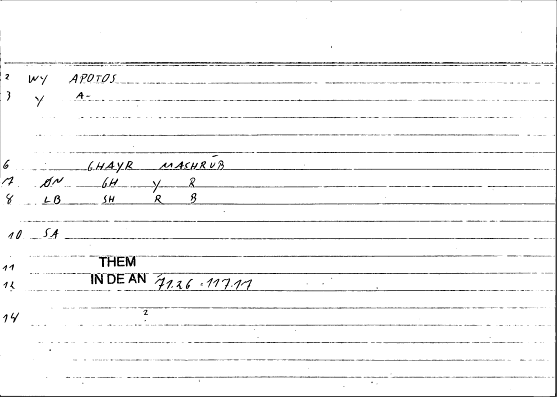 2 WY APOTOS
3 Y A-
6 GHAYR MASHRŪB
7 ØN GH Y R
8 LB SH R B
10 SA
11 THEM
12 IN DE AN 71.26 · 117.11
14 2